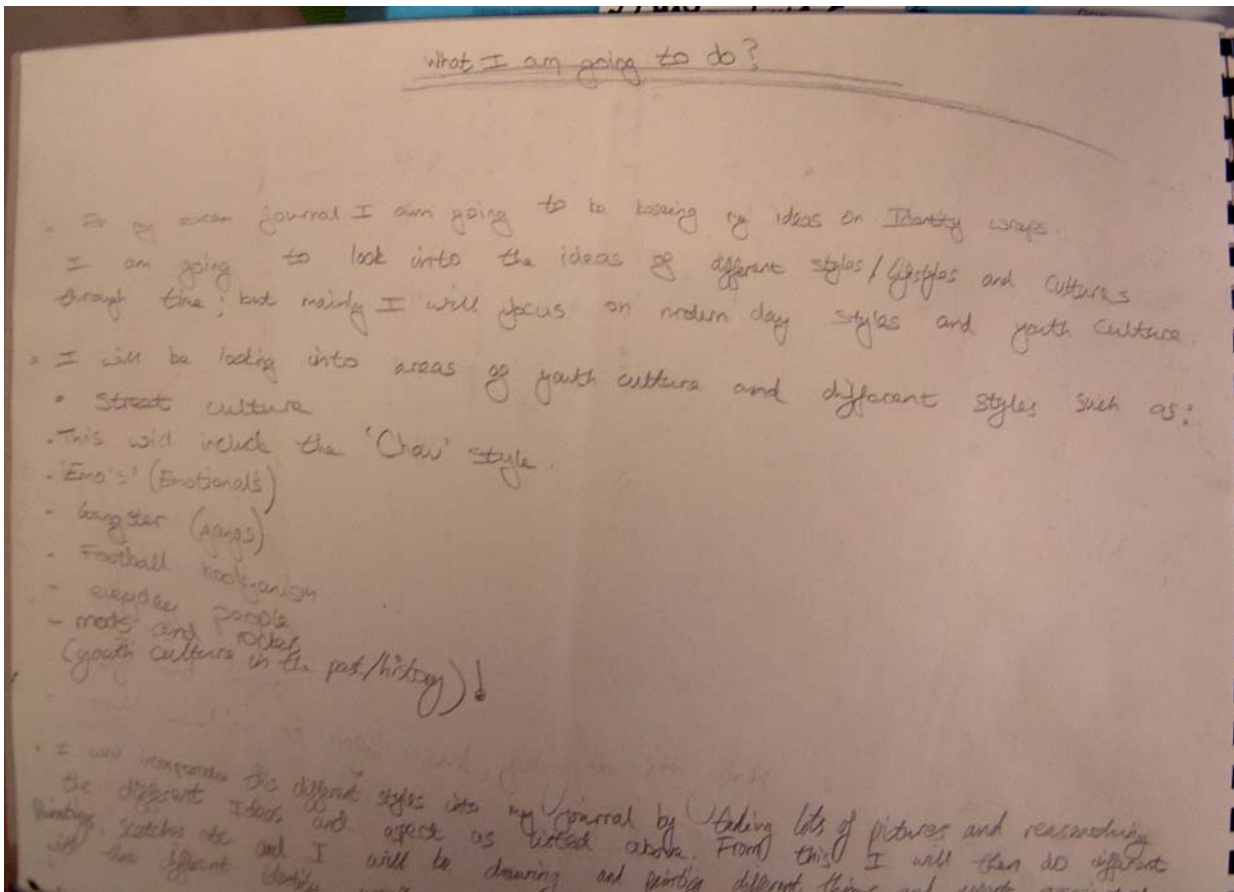 What I am going to do?
• For my exam journal I am going to be basing my ideas on Identity wraps.
I am going to look into the ideas of different styles/lifestyles and cultures
through time; but mainly I will focus on modern day styles and youth culture.
• I will be looking into areas of youth culture and different styles such as:
• Street culture
• This will include the 'Chav' style.
- 'Emo's' (Emotional's)
- Gangster (gangs)
- Football hooliganism
- everyday people
- mods and rockers
(youth culture in the past/history)!
• I will this different styles into my journal by taking lots of pictures and
the different Ideas and aspect as listed above. From this I will then do different
etc and I will be drawing and painting different things and
with these different identity